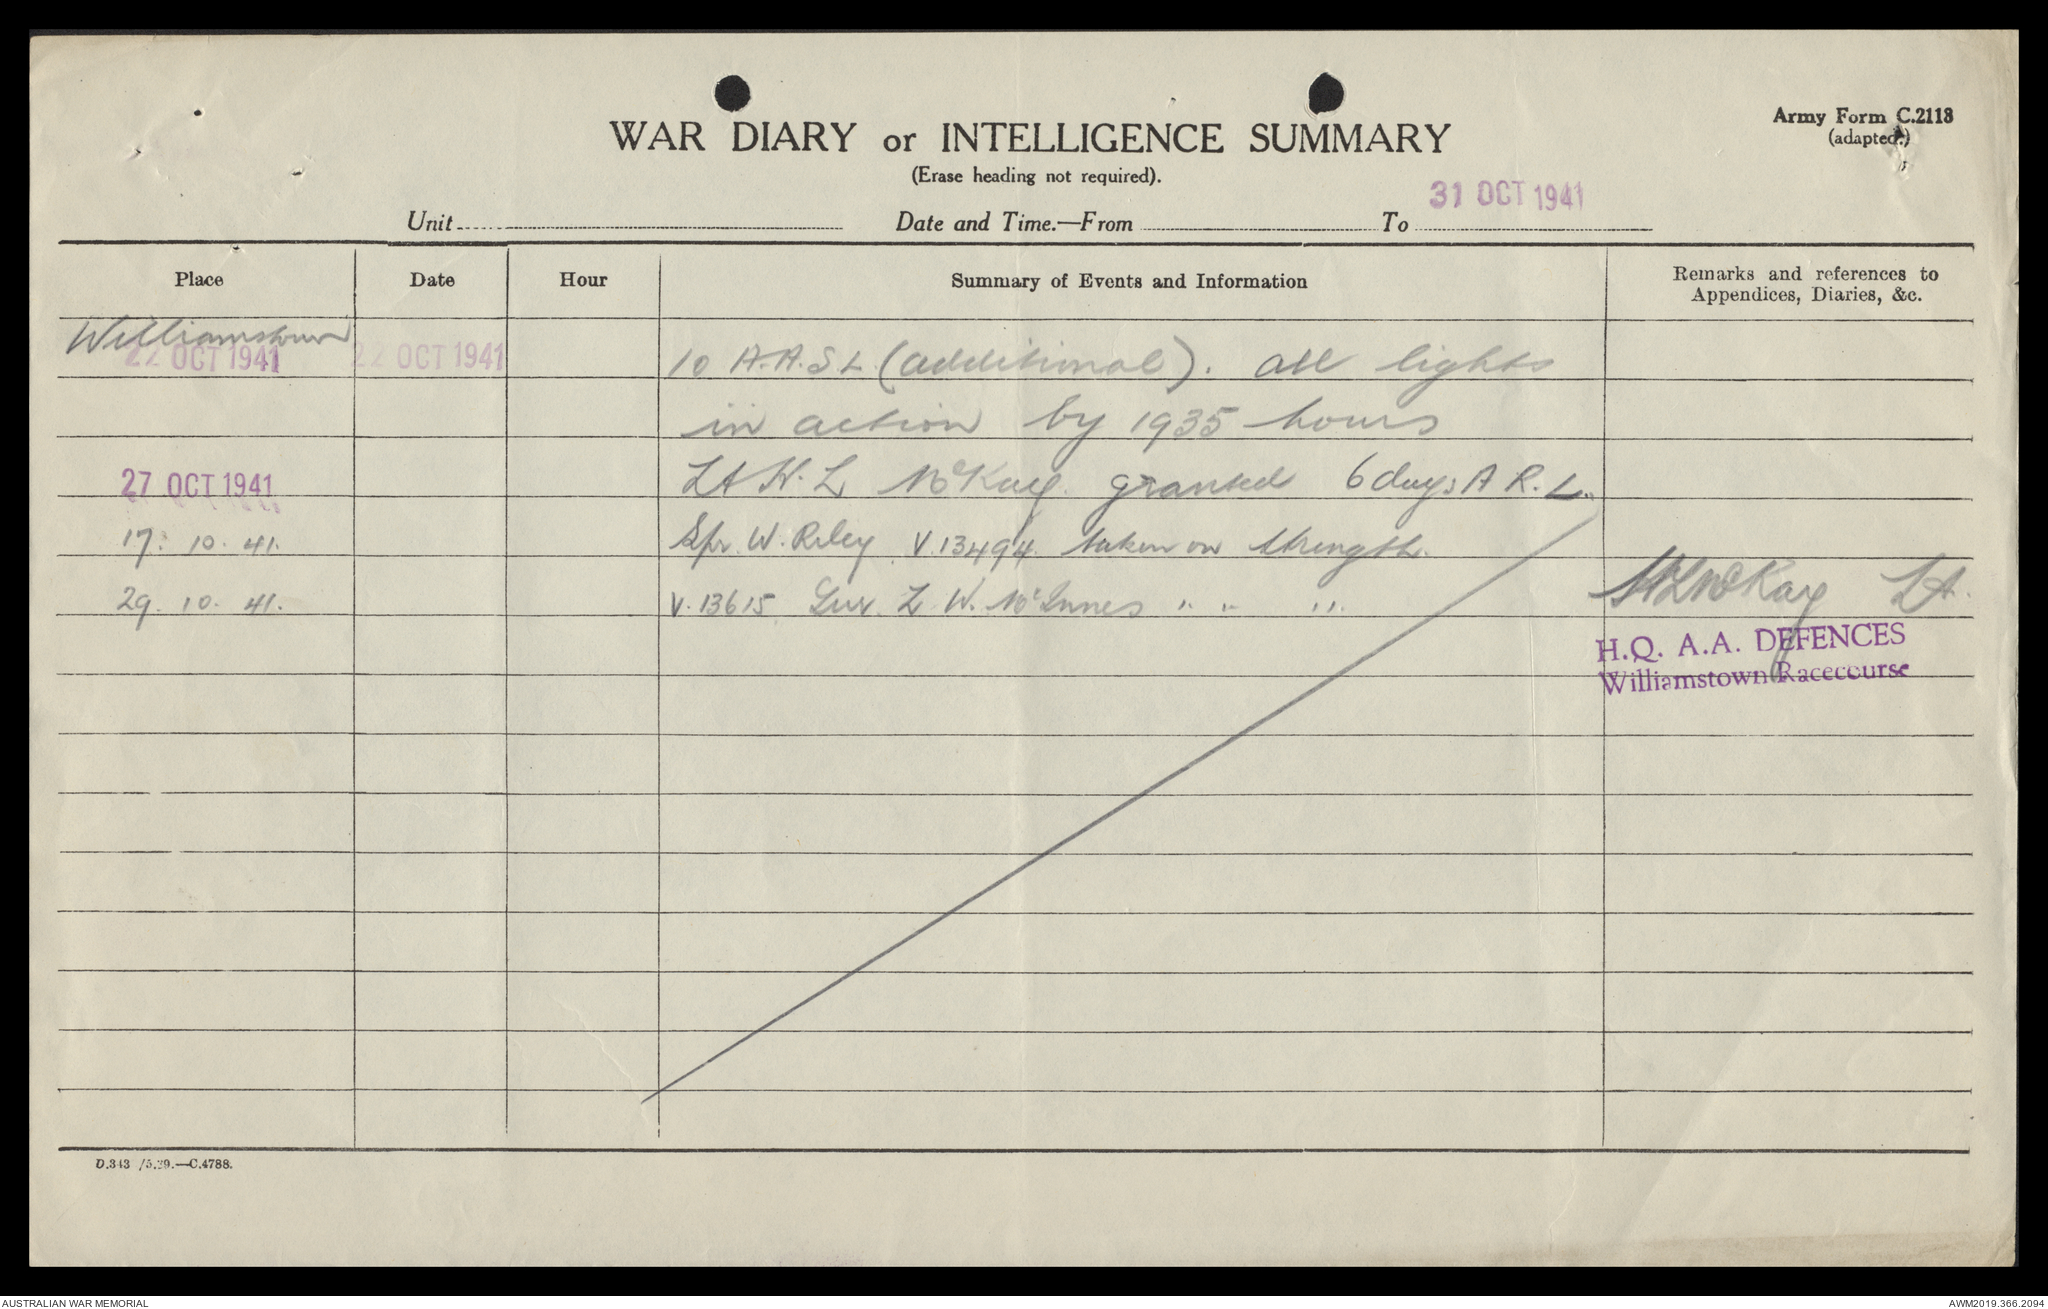 Army Form C.2118
(adapted.)
WAR DIARY or INTELLIGENCE SUMMARY
(Erase heading not required).
31 OCT 1941
Unit Date and Time.—From To
Place Date Hour Summary of Events and Information Remarks and references to
Appendices, Diaries, &c.
Williamstown
22 OCT 1941 22 OCT 1941 10 A.A.S.L (additional). All lights
in action by 1935 hours
27 OCT 1941 Lt H. L McKay granted 6 days A R. L.
17. 10. 41. Spr. W. Riley V.13494 taken on strength.
29. 10. 41. V.13615 L. W. McInnes " " "
HLMcKay Lt.
H.Q. A.A. DEFENCES
Williamstown Racecourse
D.343 /5.39.—C.4788.
AUSTRALIAN WAR MEMORIAL AWM2019.366.2094